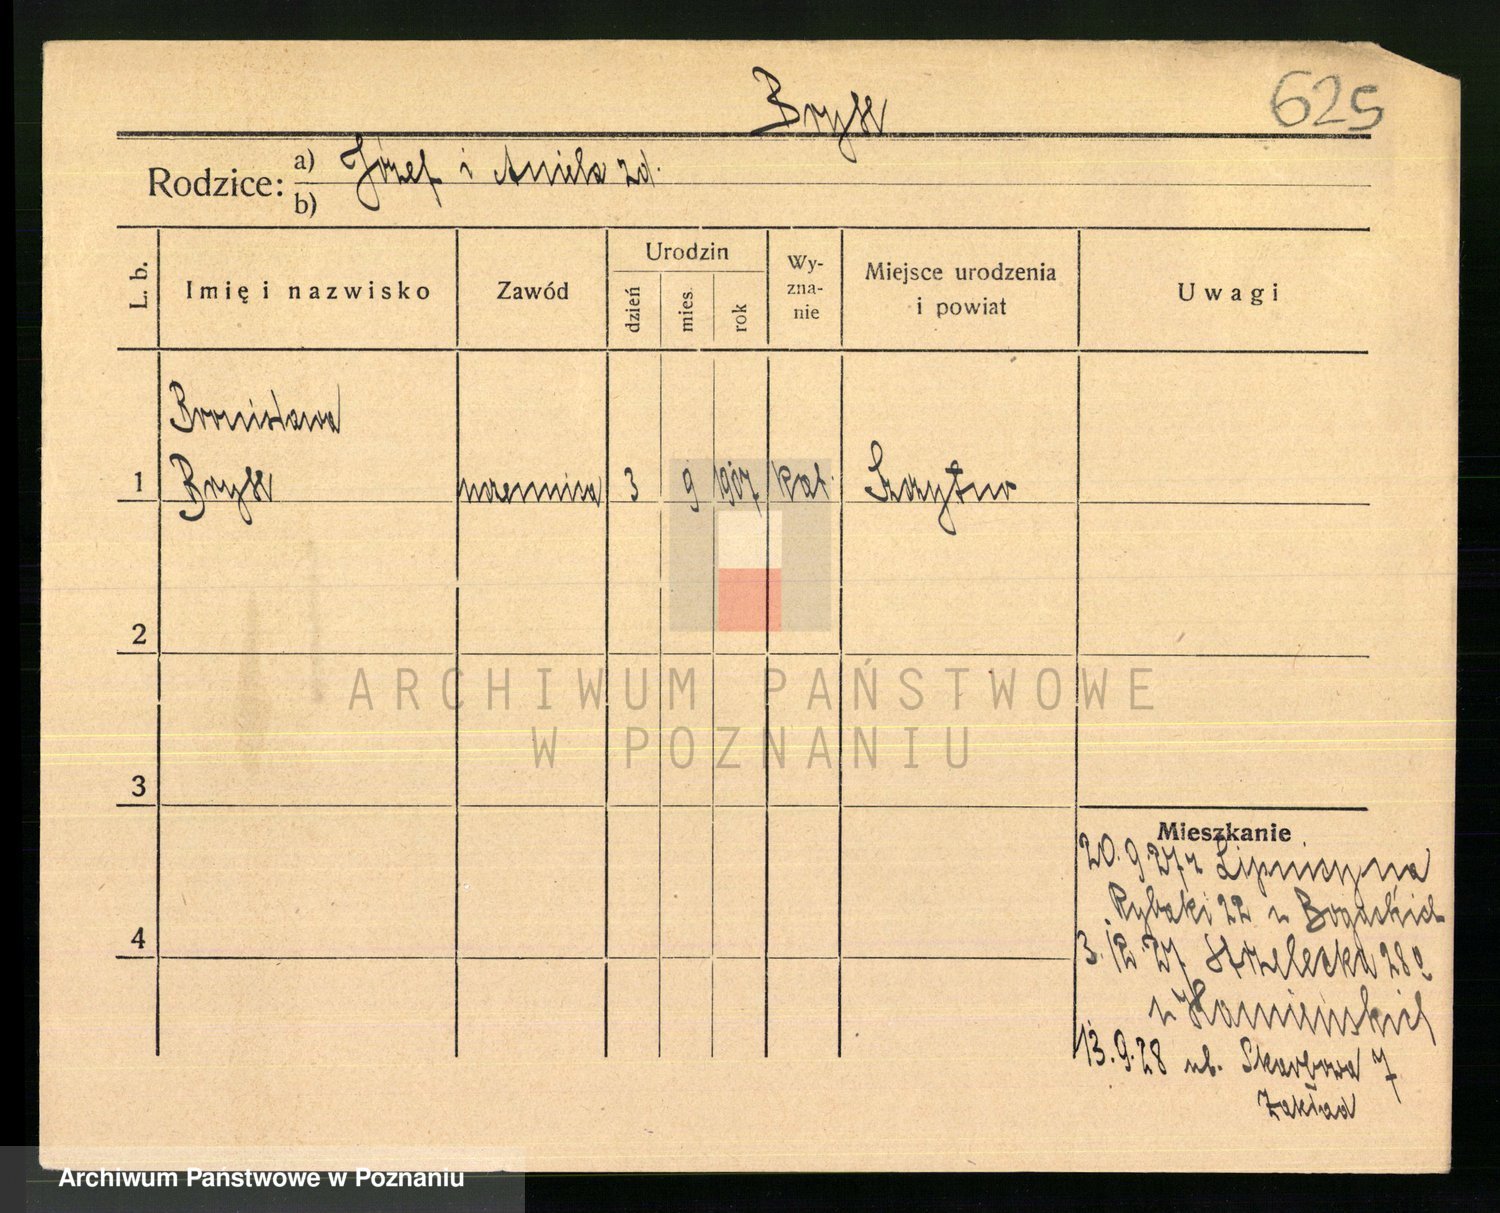 Brysk
625
Rodzice: a) Józef i Aniela zd.
b)
L. b.
Imię i nazwisko
Zawód
Urodzin
dzień
mies.
rok
Wy-
zna-
nie
Miejsce urodzenia
i powiat
Uwagi
Bronisława
1 Brysk uczennica 3 9 1907 kat. Szczytno
2
3
4
Mieszkanie
20.9 27 z Lipnicy na
Rybaki 22 u Bogackich
3.12 27 Strzelecka 28
u Kamieńskich
13.9.28 ul. Skarbowa 7
Zakład
ARCHIWUM PAŃSTWOWE
W POZNANIU
Archiwum Państwowe w Poznaniu